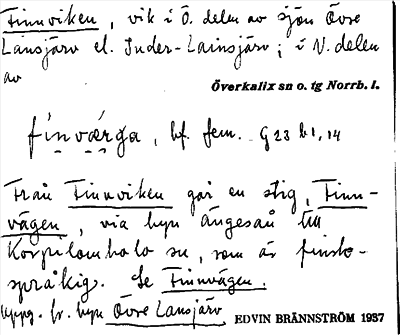 Finnviken, vik i Ö. delen av sjön Övre
Lansjärv el. Inder-Lainsjärv; i N. delen
av
Överkalix sn o. tg Norrb. l.
fìnvǽrga, bf. fem. G 23 b 1, 14
Från Finnviken går en stig, Finn-
vägen, via byn Ängesån till
Korpilombolo sn, som är finsk-
språkig. Se Finnvägen.
Uppg. fr. byn Övre Lansjärv
EDVIN BRÄNNSTRÖM 1937